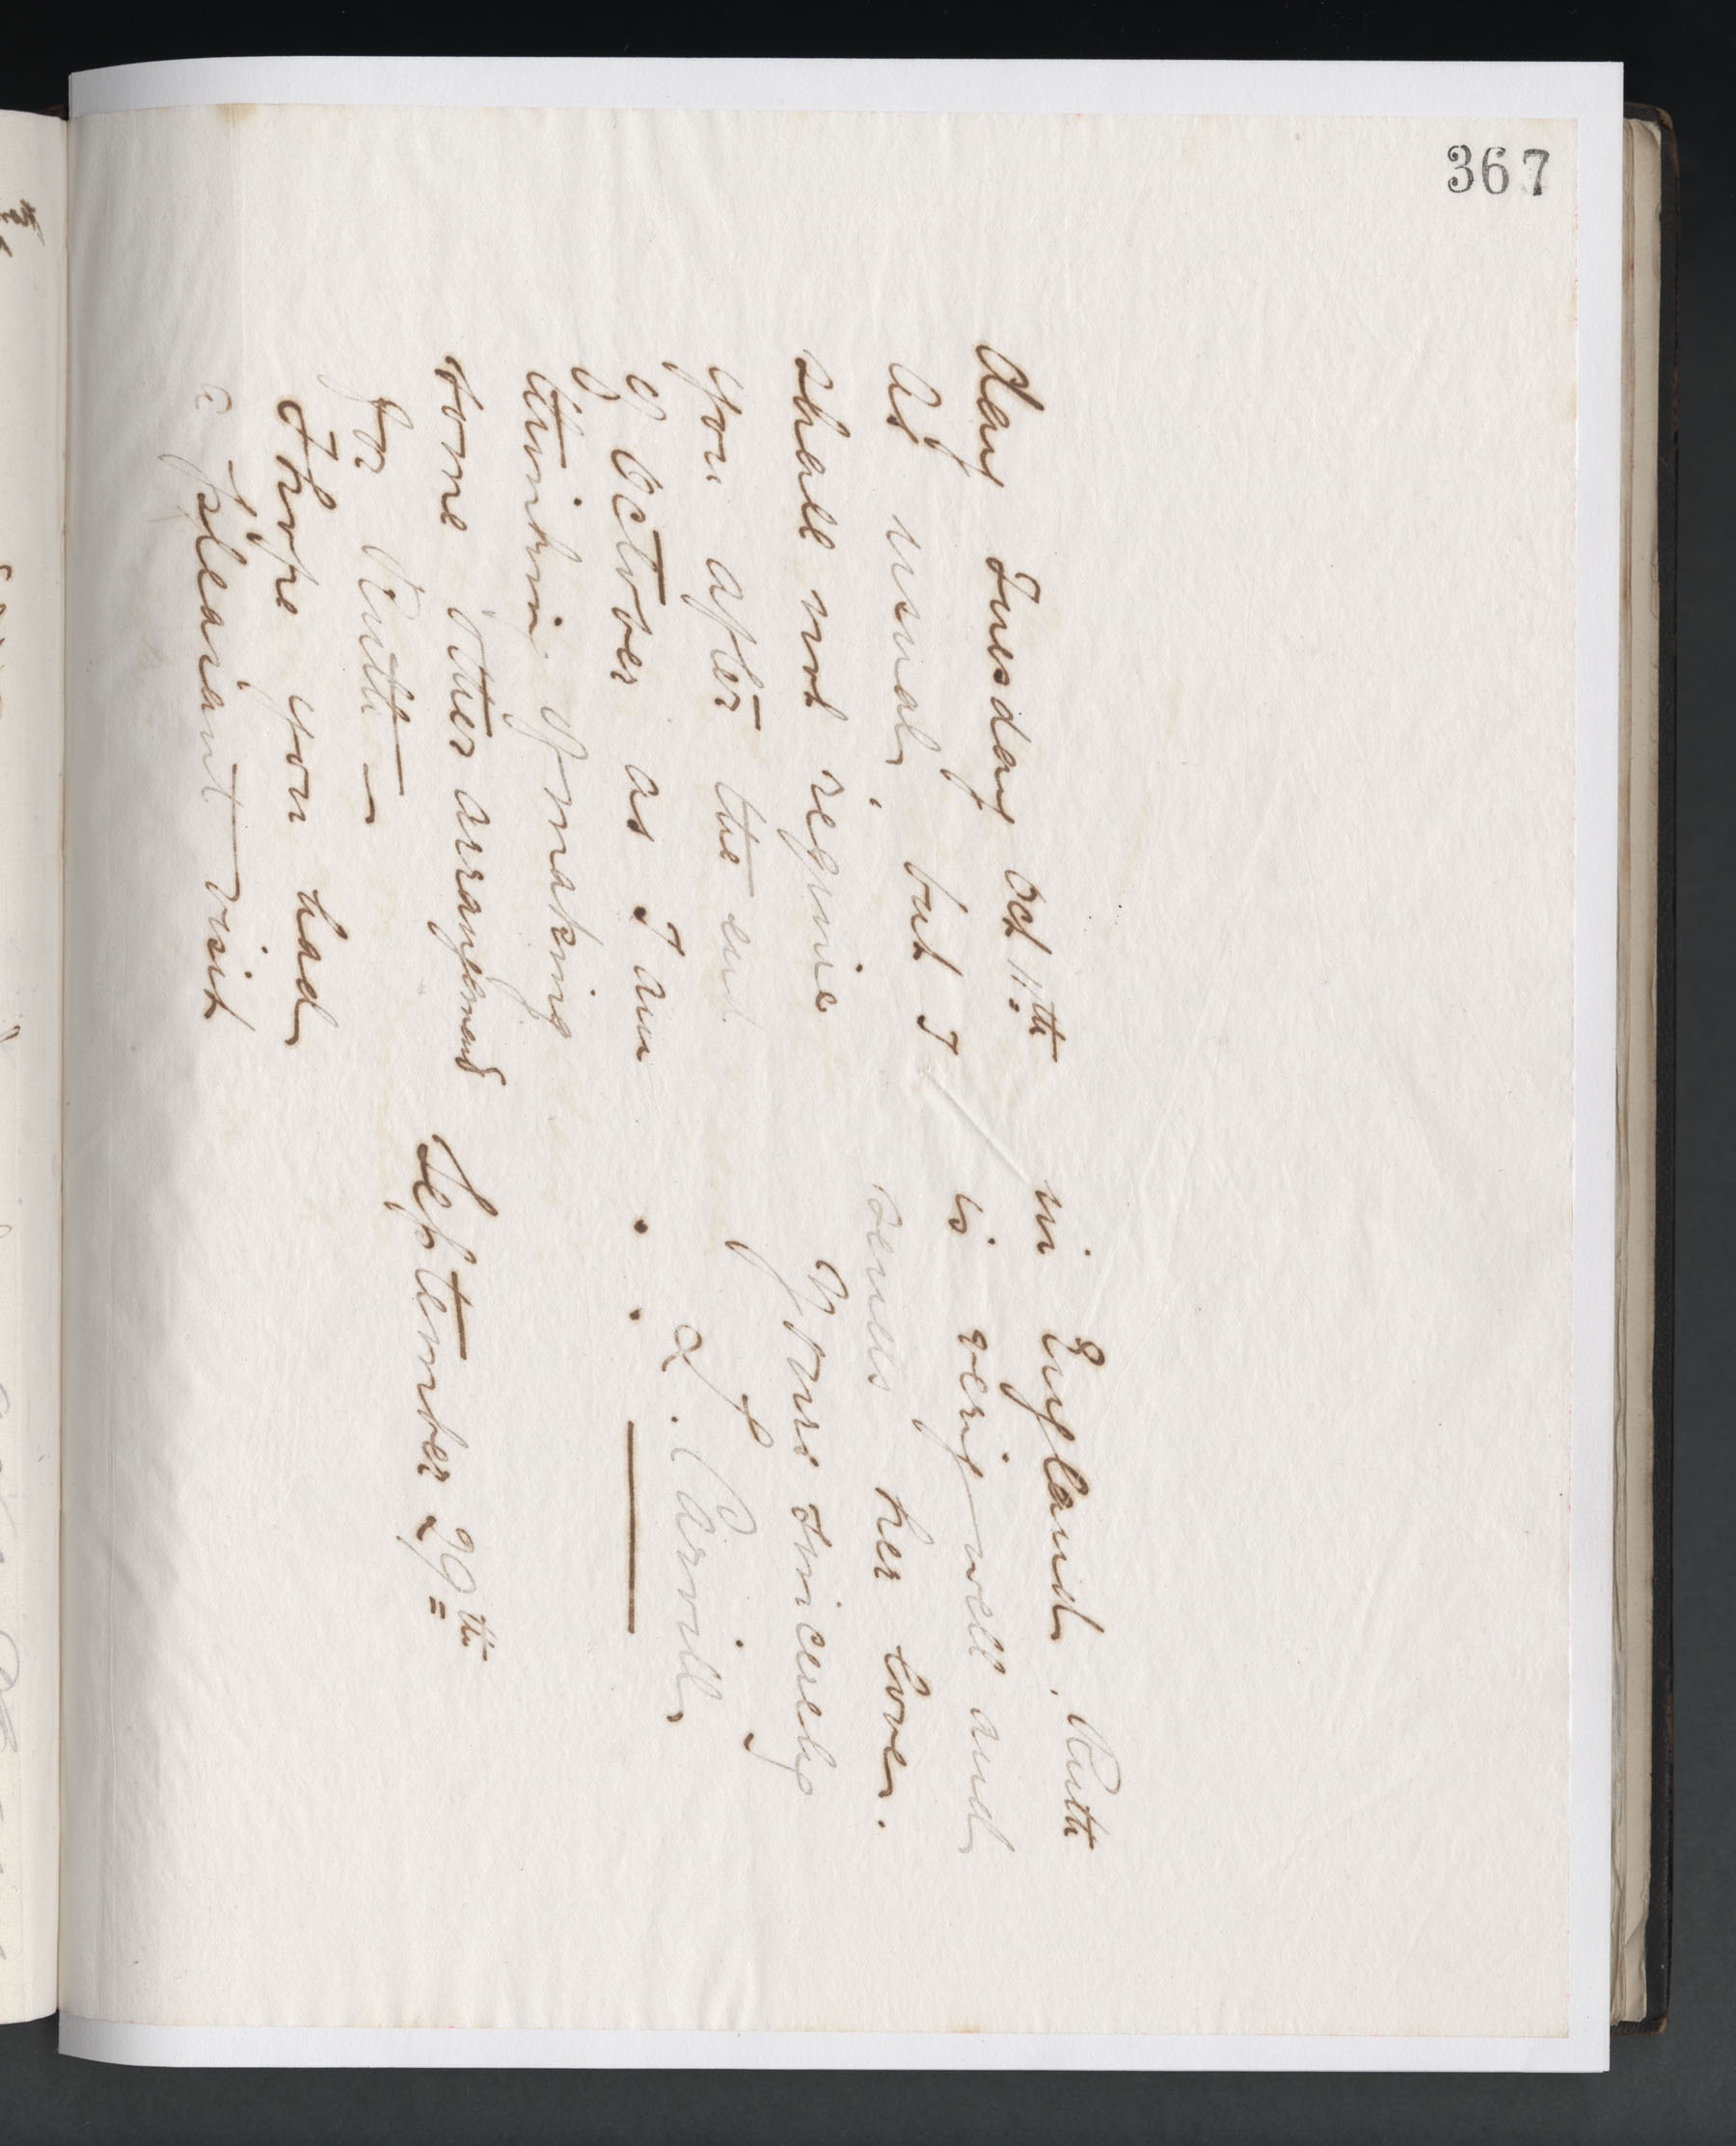 367
day Tuesday Oct 11th
as usual, but I
shall not require
you after the end
of October as I am
thinking of making
some other arrangement
for Ruth —
I hope you had
a pleasant visit
in England. Ruth
is very well and
sends her love.
Yours sincerely
L. Carvill
September 29th